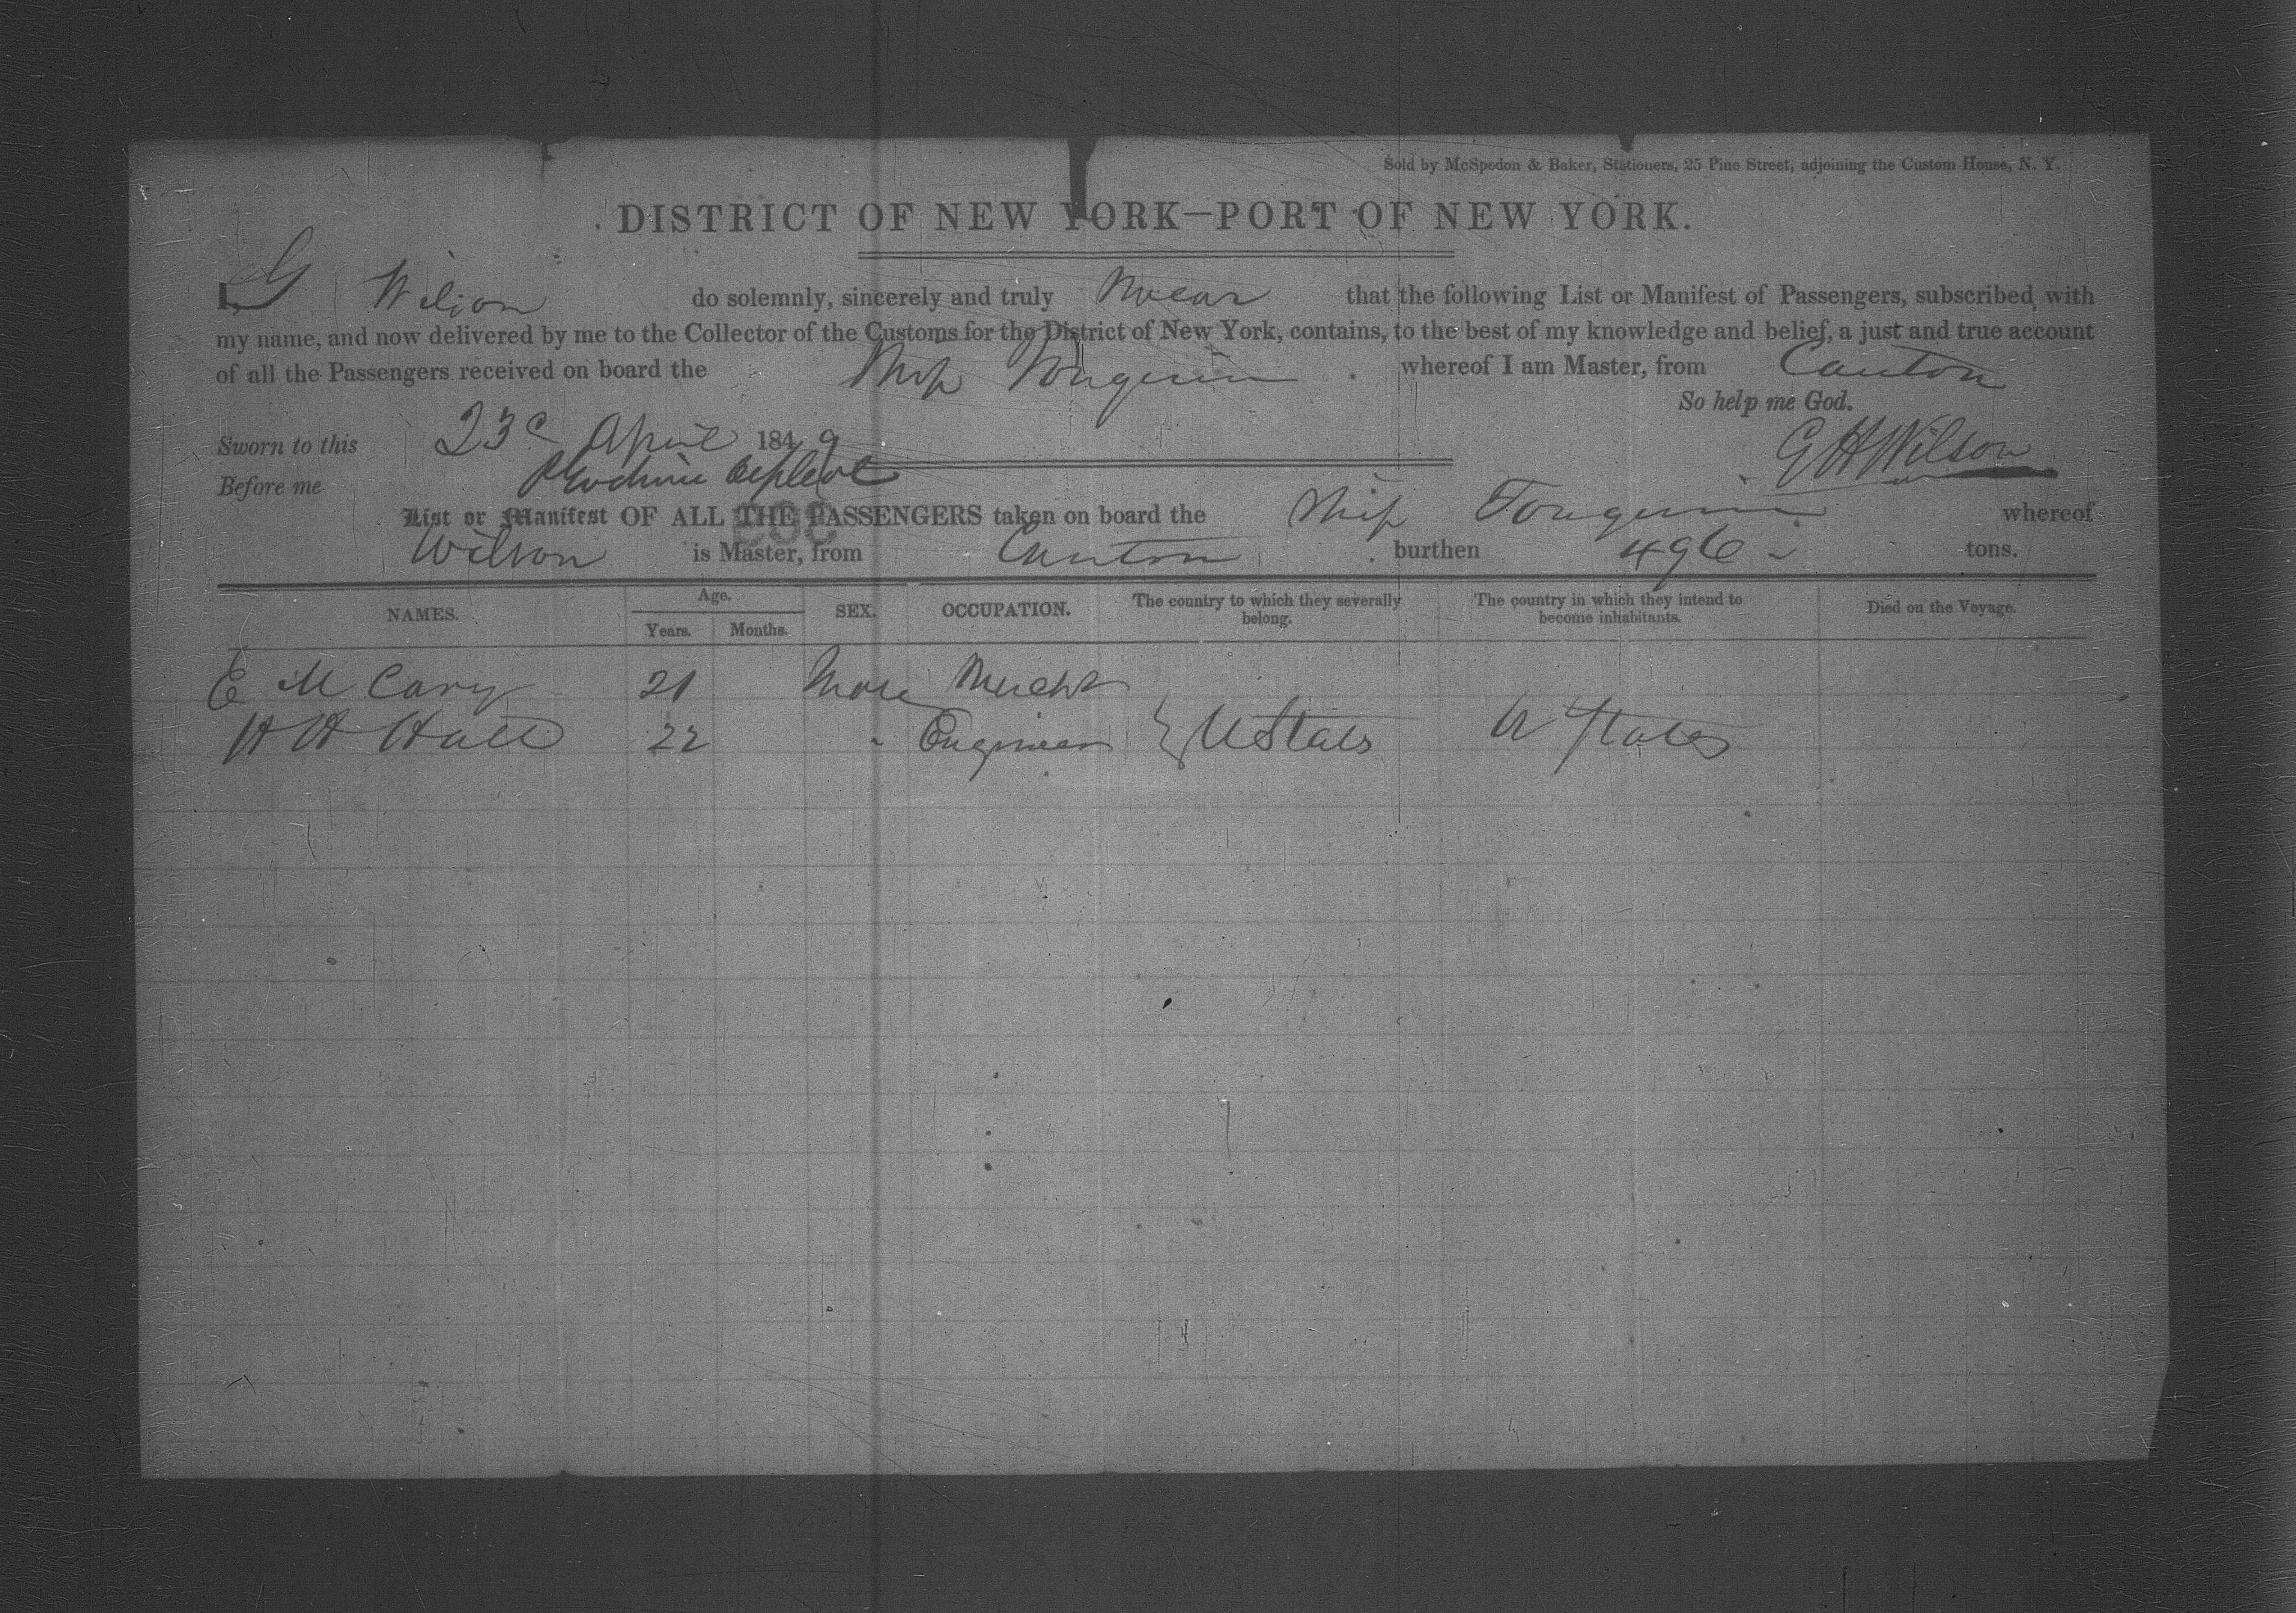 Sold by McSpedon & Baker, Stationers, 25 Pine Street, adjoining the Custom House, N. Y.
DISTRICT OF NEW YORK—PORT OF NEW YORK.
I, G Wilson do solemnly, sincerely and truly swear that the following List or Manifest of Passengers, subscribed with
my name, and now delivered by me to the Collector of the Customs for the District of New York, contains, to the best of my knowledge and belief, a just and true account
of all the Passengers received on board the Ship Tonquin whereof I am Master, from Canton
So help me God.
Sworn to this 23d April 1849
G H Wilson
Before me
List or Manifest OF ALL THE PASSENGERS taken on board the Ship Tonquin whereof
Wilson is Master, from Canton burthen 496 tons.
NAMES. Age. Years. Months. SEX. OCCUPATION. The country to which they severally belong. The country in which they intend to become inhabitants. Died on the Voyage.
E M Cary 21 Male Mercht
H H Hall 22 " Engineer } U States U States